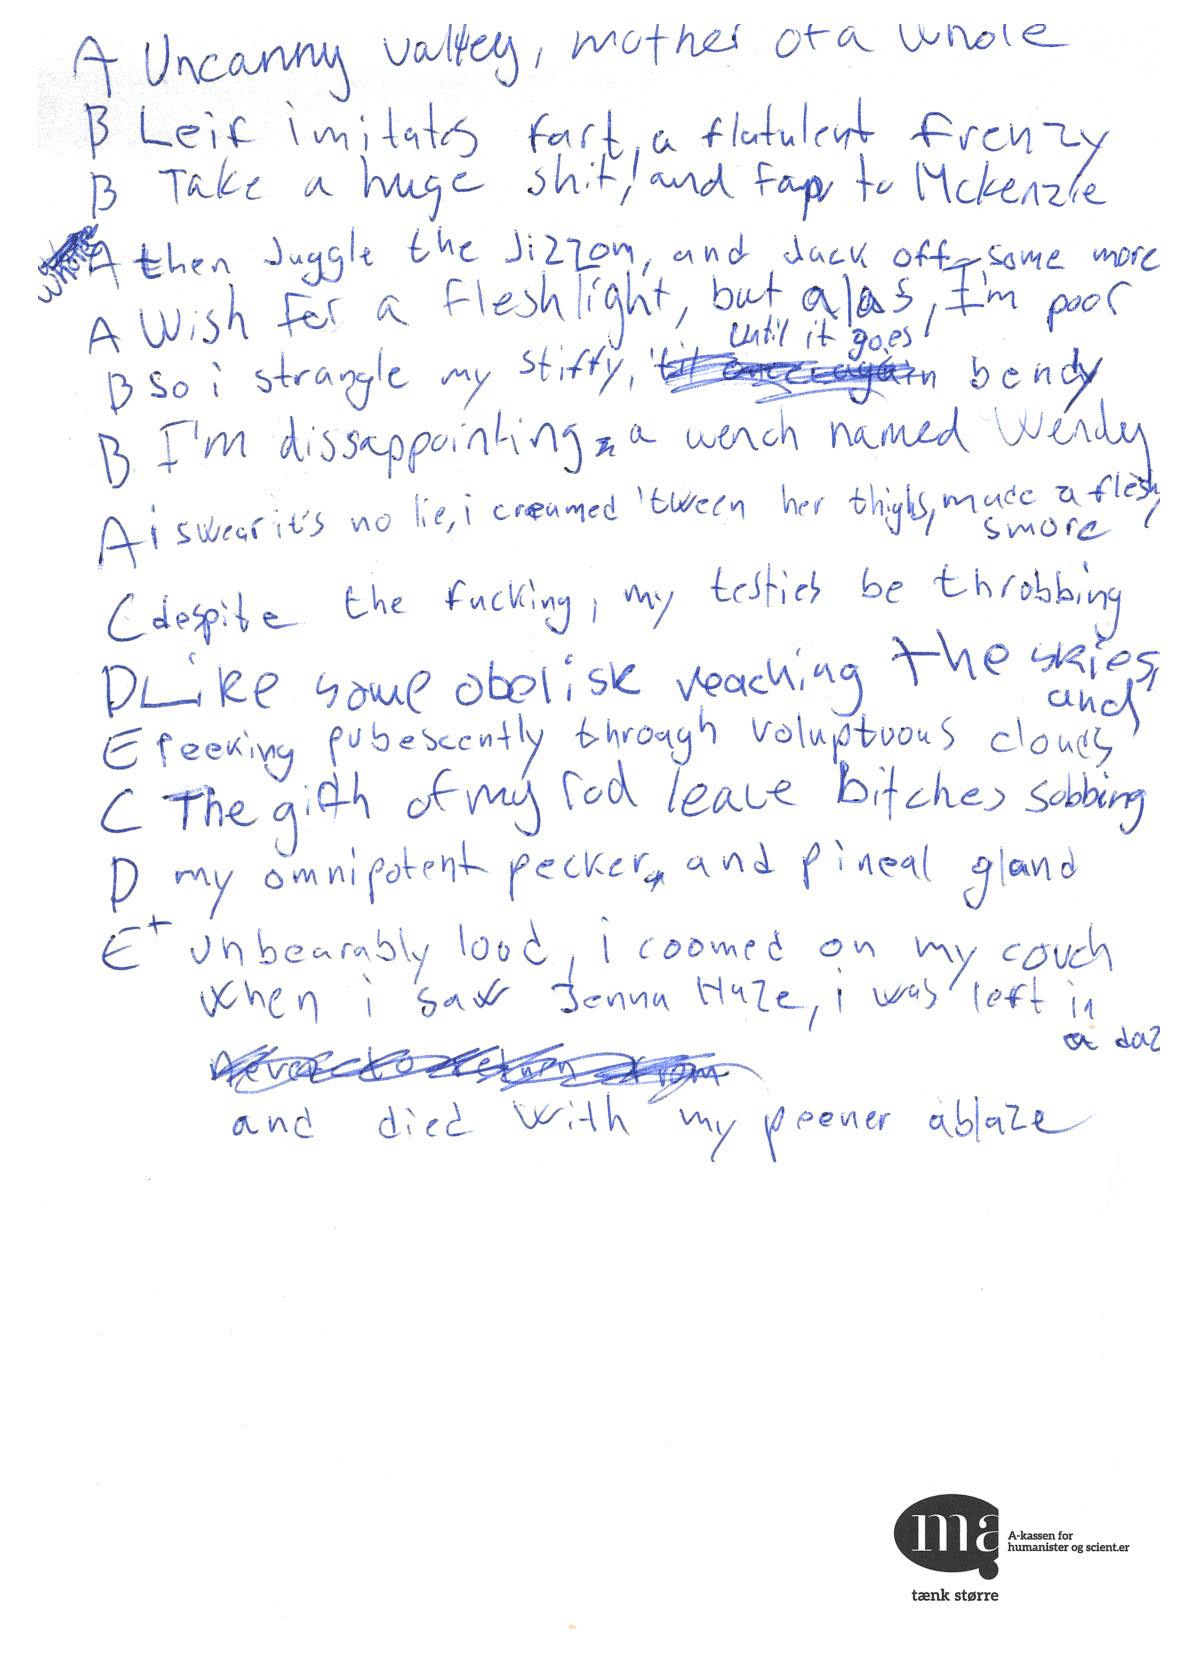 A Uncanny valley, mother of a whole
B Leif imitates fart, a flatulent frenzy
B Take a huge shit, and fap to Mckenzie
whore
A then Juggle the Jizzom, and Jack off some more
A Wish for a fleshlight, but alas, I'm poor
until it goes
B so i strangle my stiffy, 'til once again bendy
B I'm dissappointing a wench named Wendy
A i swear it's no lie, i creamed 'tween her thighs, made a flesh
smore
C despite the fucking, my testies be throbbing
D Like some obelisk reaching the skies,
and
E Peeking pubescently through voluptuous clouds
C The gifth of my rod leave bitches sobbing
D my omnipotent pecker, and pineal gland
E+ unbearably loud, i coomed on my couch
when i saw Jenna Haze, i was left in
a daz
never to return from
and died with my peener ablaze
ma
A-kassen for
humanister og scient.er
tænk større